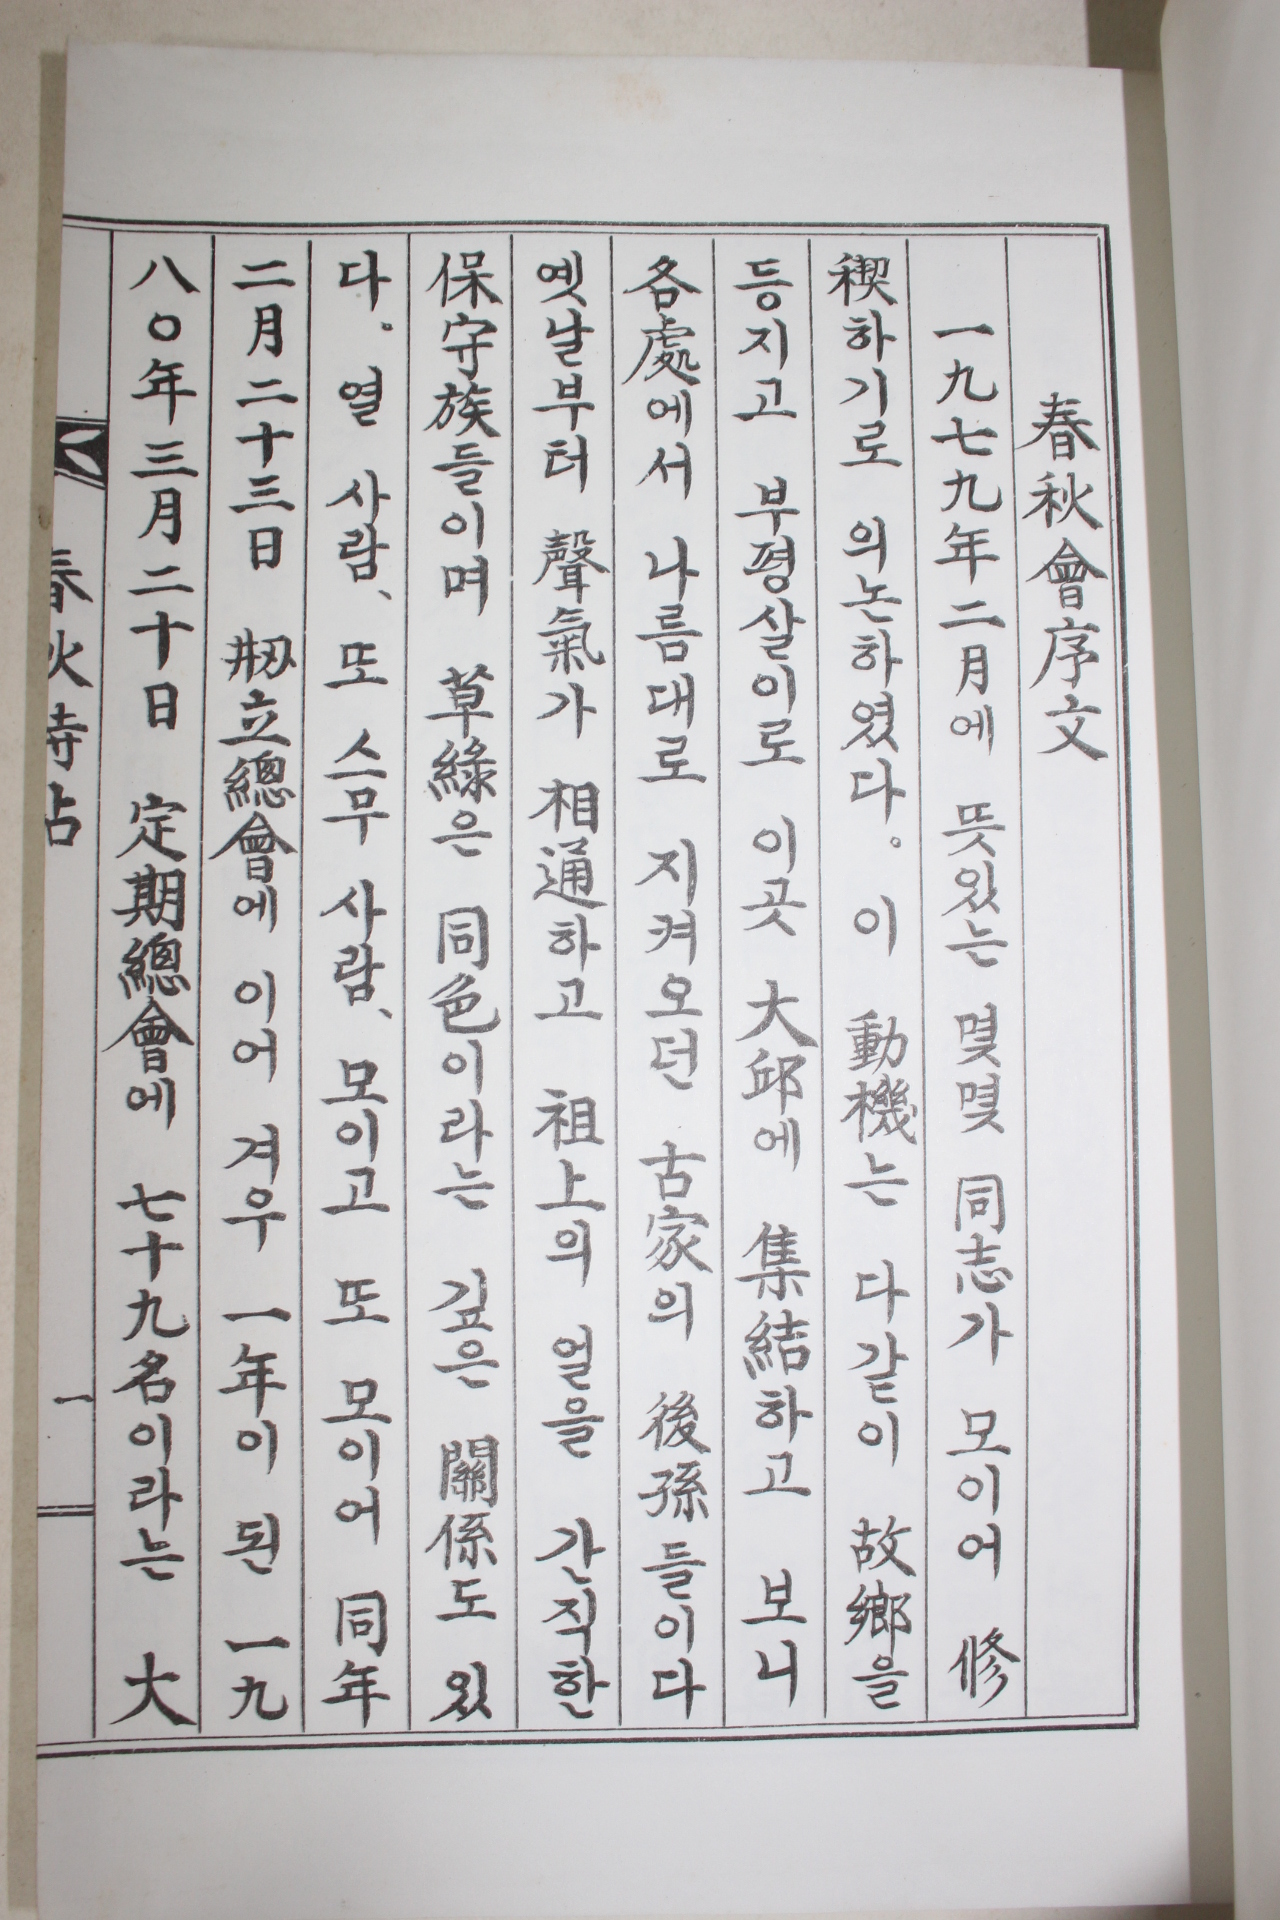 春秋會序文
一九七九年二月에 뜻있는 몇몇 同志가 모이어 修
稧하기로 의논하였다. 이 動機는 다같이 故鄕을
등지고 부평살이로 이곳 大邱에 集結하고 보니
各處에서 나름대로 지켜오던 古家의 後孫들이다
옛날부터 聲氣가 相通하고 祖上의 얼을 간직한
保守族들이며 草綠은 同色이라는 깊은 關係도 있
다. 열 사람、또 스무 사람、모이고 또 모이어 同年
二月二十三日 刱立總會에 이어 겨우 一年이 된 一九
八〇年三月二十日 定期總會에 七十九名이라는 大
春秋詩帖
一